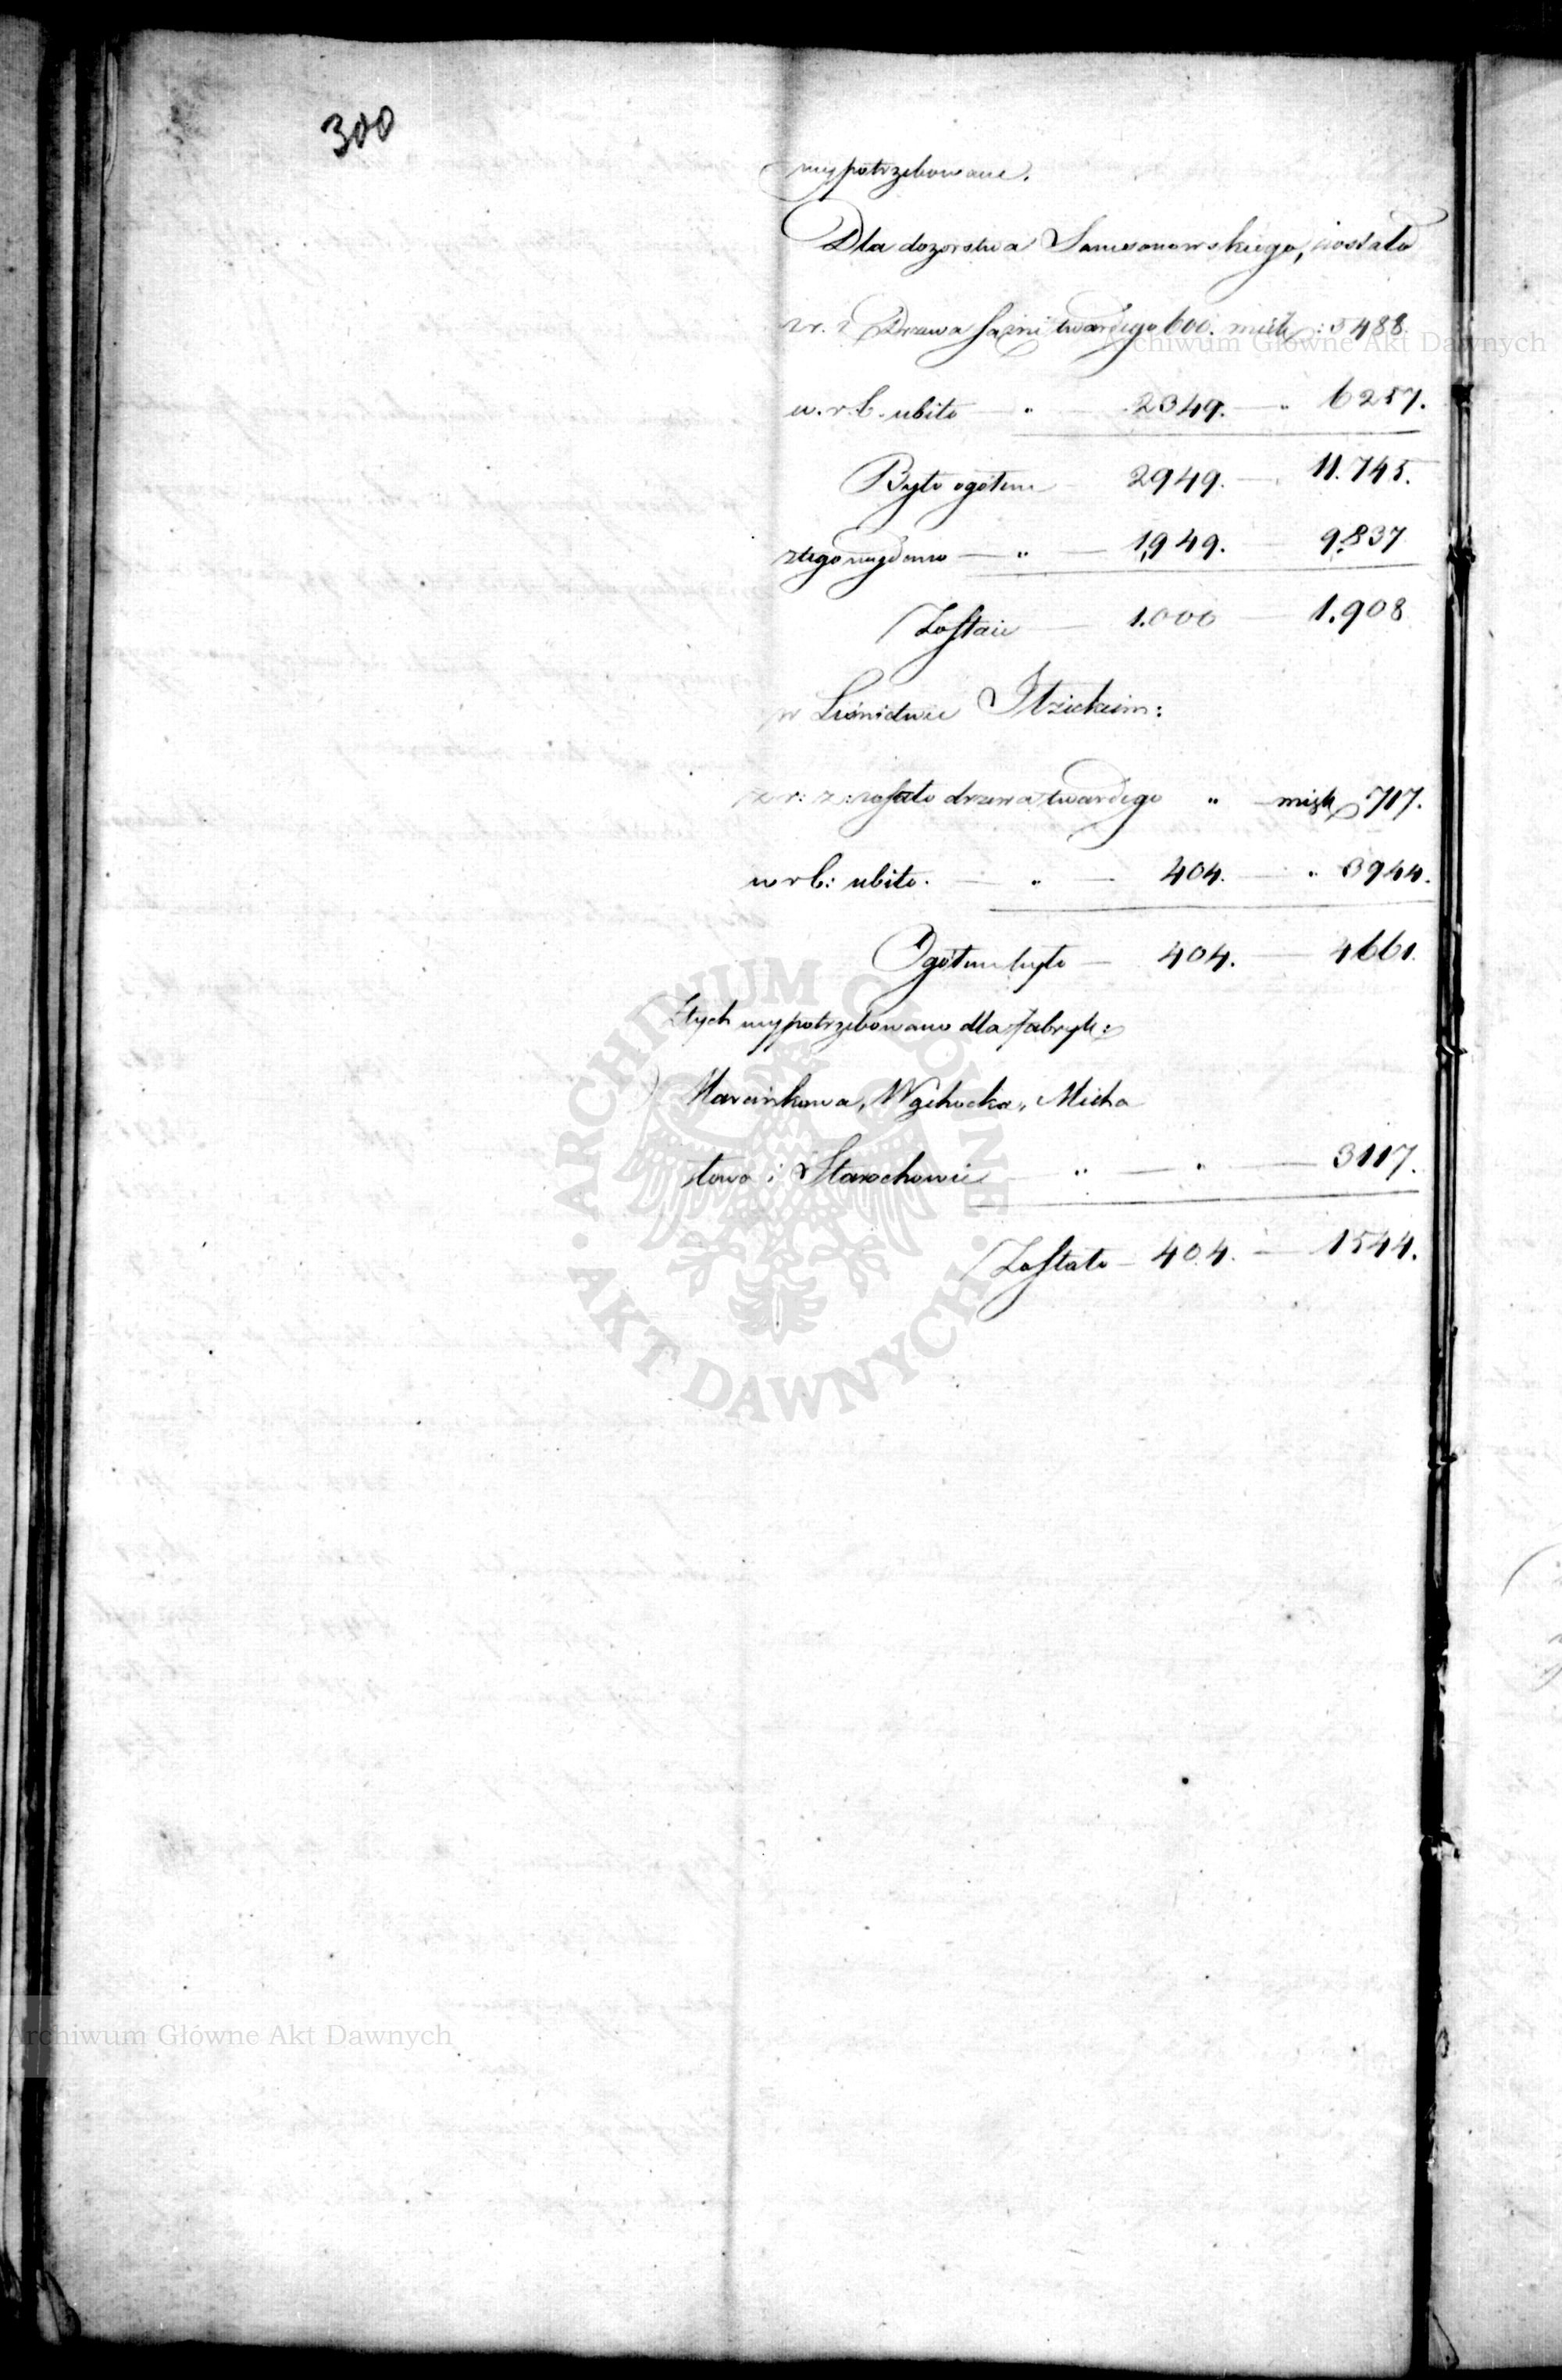 300
wypotrzebowane.
Dla dozorstwa Samsonowskiego, zostało
z r. z. Drzewa sążni twardego 600. mięk: 5488.
w. r. b. ubito — " — 2349. — " 6257.
Było ogółem — 2949. — 11.745.
z tego wydano — " — 1,949. — 9,837
Zostaie — 1.000 — 1.908
w Leśnictwie Iłzeckim:
z r: z: zostało drzewa twardego " — mięk 717.
w r b: ubito. — " — 404. — " 3944.
Ogółem było — 404. — 4661.
Z tych wypotrzebowano dla fabryk:
Marcinkowa, Wąchocka, Micha
łowa i Starachowic — " — " — 3117.
Zostało — 404. — 1544.
Archiwum Główne Akt Dawnych
ARCHIWUM GŁÓWNE AKT DAWNYCH
Archiwum Główne Akt Dawnych